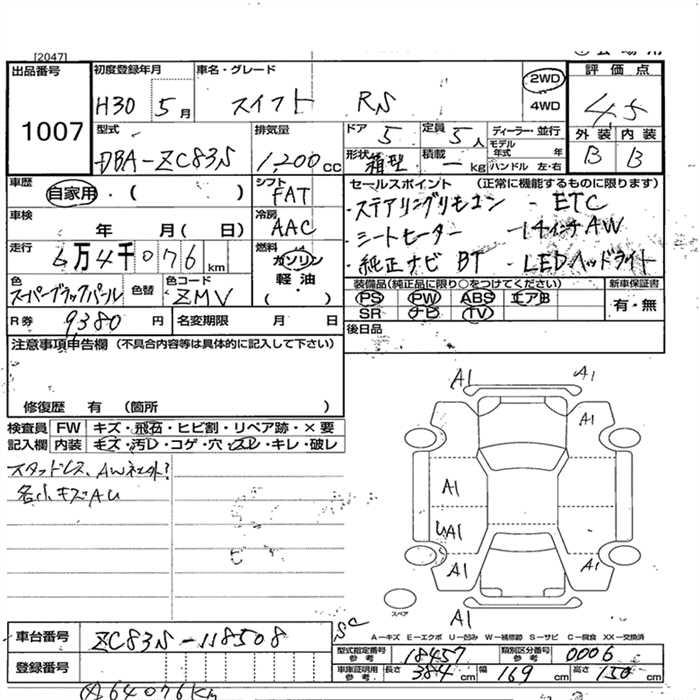 [2047]
出品番号
1007
初度登録年月
H30 5月
車名・グレード
スイフト RS
2WD
4WD
評価点
4.5
外装 内装
B B
型式
DBA-ZC83S
排気量
1,200cc
ドア 5
定員 5人
ディーラー・並行
モデル年式 年
ハンドル 左・右
形状 箱型
積載 ー kg
車歴
自家用・( )
シフト
FAT
車検
年 月( 日)
冷房
AAC
走行
6万4千076km
燃料
ガソリン
軽油
( )
色
スーパーブラックパール
色替
色コード
ZMV
R券 9,380円
名変期限 月 日
セールスポイント (正常に機能するものに限ります)
・ステアリングリモコン - ETC
・シートヒーター -14インチAW
・純正ナビ BT - LEDヘッドライト
装備品(純正品に限り○をつけてください)
PS PW ABS エアB
SR ナビ TV
新車保証書
有・無
後日品
注意事項申告欄(不具合内容等は具体的に記入して下さい)
修復歴 有 (箇所 )
検査員 FW キズ・飛石・ヒビ割・リペア跡・×要
記入欄 内装 キズ・汚レ・コゲ・穴・スレ・キレ・破レ
スタッドレス、AW社外?
各小キズAU
A1
A1
A1
A1
UA1
A1
A1
A1
スペア
A-キズ E-エクボ U-凹み W-補修跡 S-サビ C-腐食 XX-交換済
車台番号 ZC83S-118508
登録番号
SC
型式指定番号
参考
18457
類別区分番号
参考
0006
車庫証明用
参考
長さ 384cm 幅 169cm 高さ 150cm
64076Km